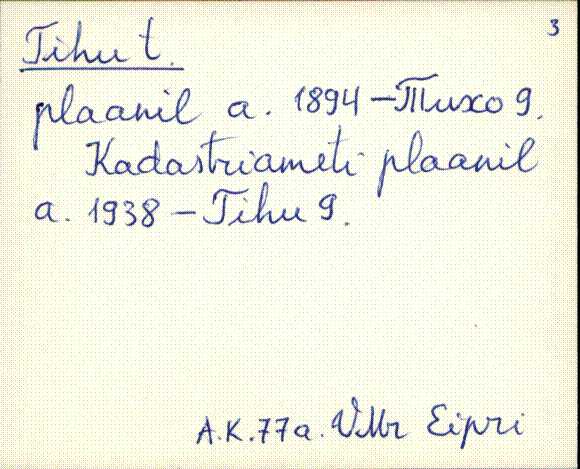 3
Tihu t.
plaanil a. 1894 – Тихо 9.
Kadastriameti plaanil
a. 1938 – Tihu 9.
A.K.77a. VMr Eipri